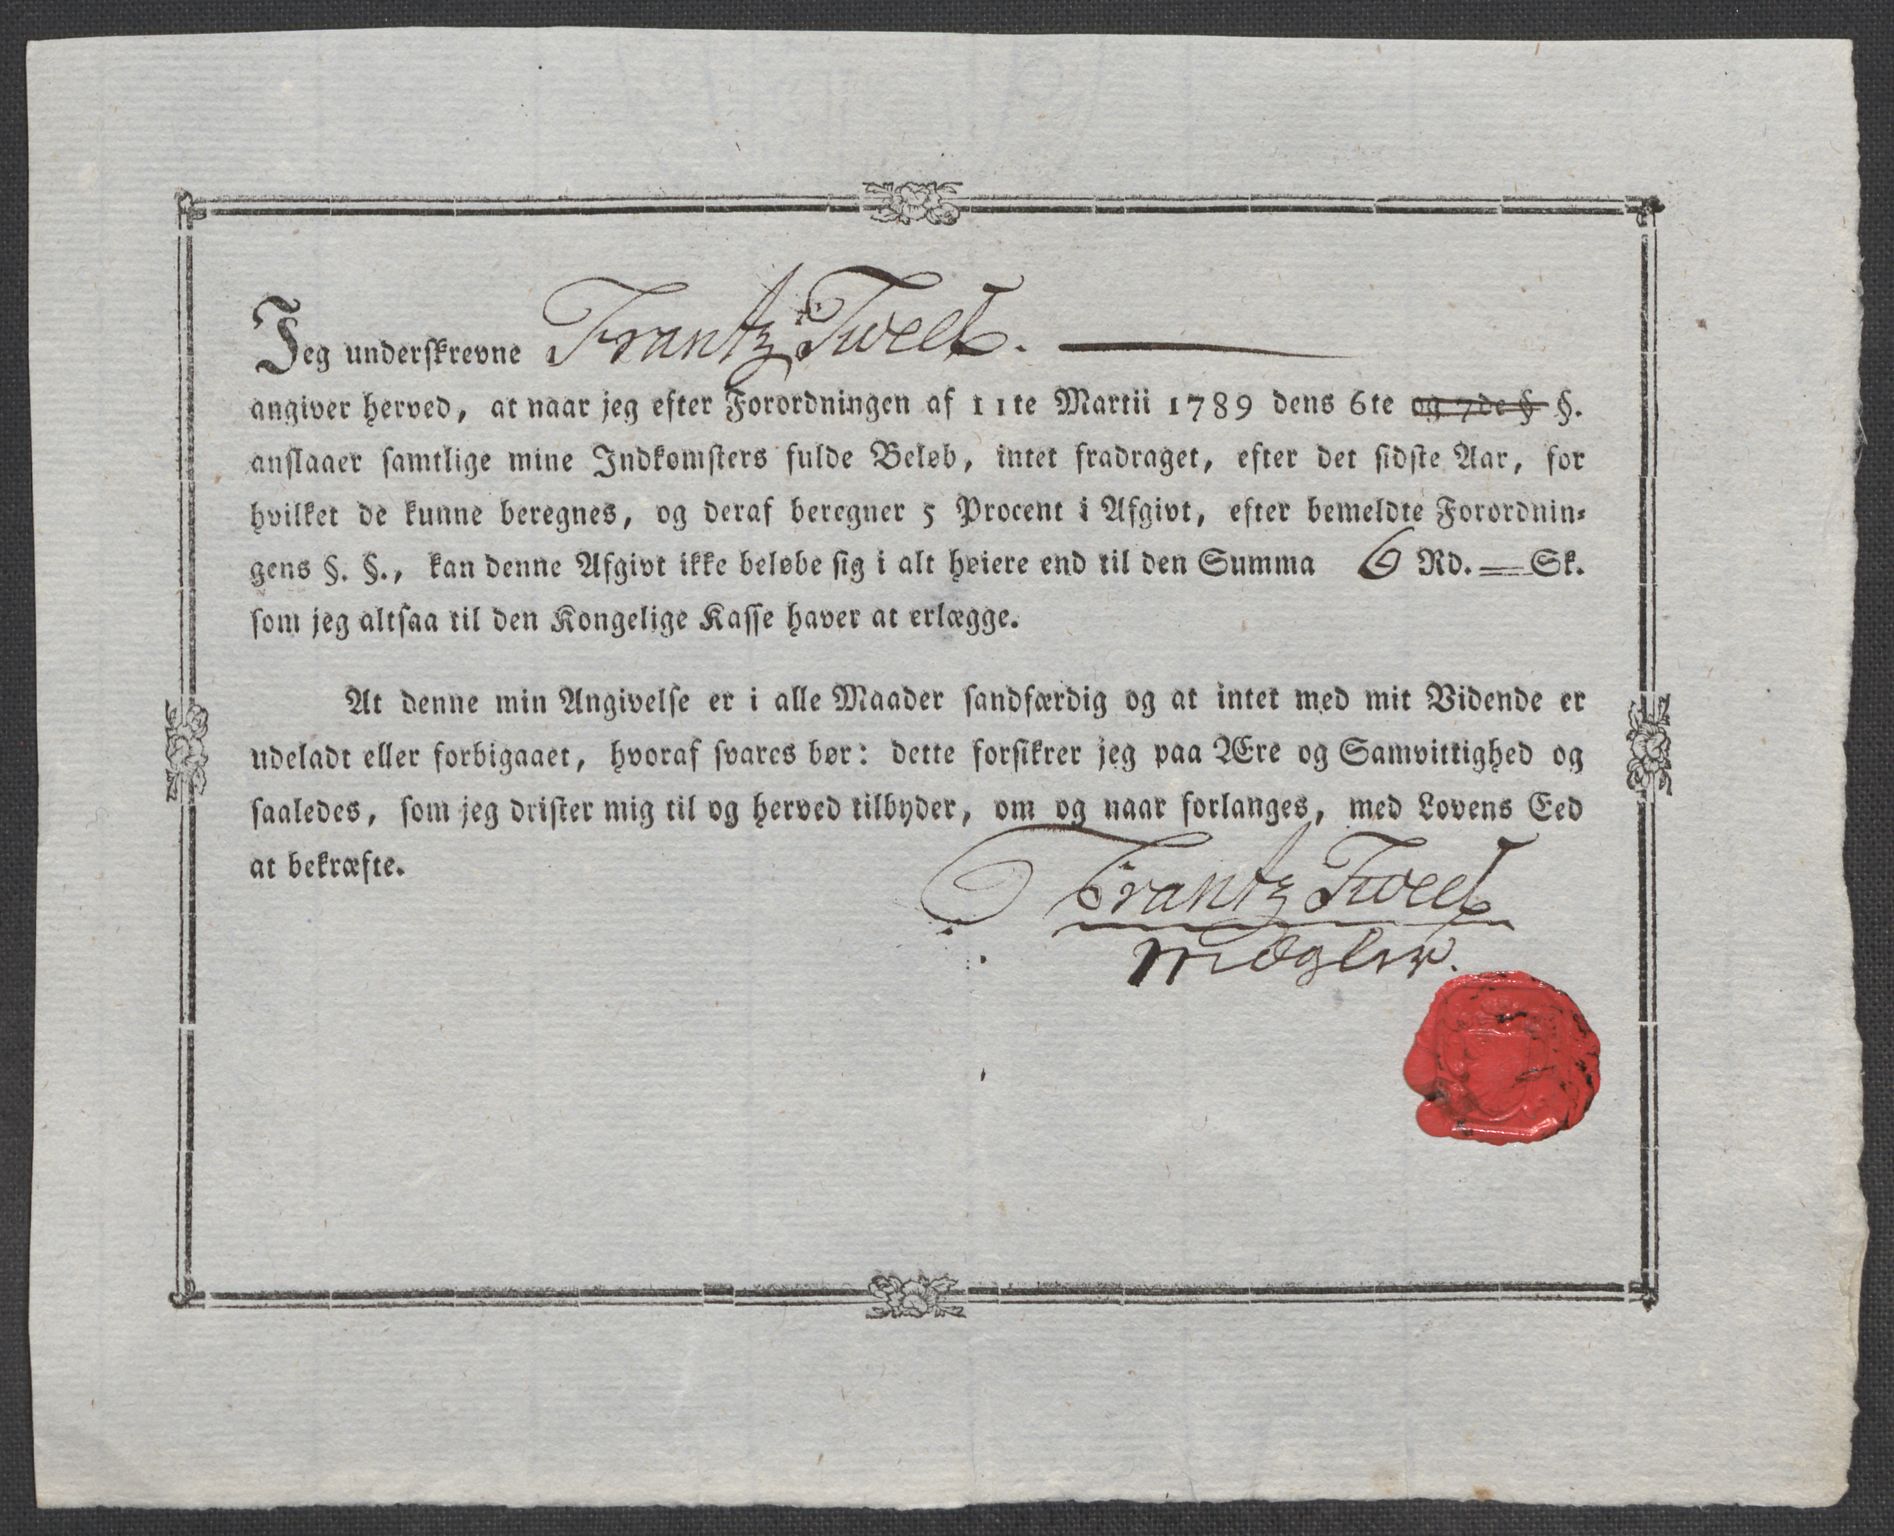 Jeg underskrevne Frantz Tweet.
angiver herved, at naar jeg efter Forordningen af 11te Martii 1789 dens 6te og 7de § §.
anslaaer samtlige mine Indkomsters fulde Beløb, intet fradraget, efter det sidste Aar, for
hvilket de kunne beregnes, og deraf beregner 5 Procent i Afgivt, efter bemeldte Forordnin-
gens §. §., kan denne Afgivt ikke beløbe sig i alt høiere end til den Summa 6 Rd. — Sk.
som jeg altsaa til den Kongelige Kasse haver at erlægge.
At denne min Angivelse er i alle Maader sandfærdig og at intet med mit Vidende er
udeladt eller forbigaaet, hvoraf svares bør: dette forsikrer jeg paa Ære og Samvittighed og
saaledes, som jeg drister mig til og herved tilbyder, om og naar forlanges, med Lovens Eed
at bekræfte.
Frantz Tweet
Mægler.